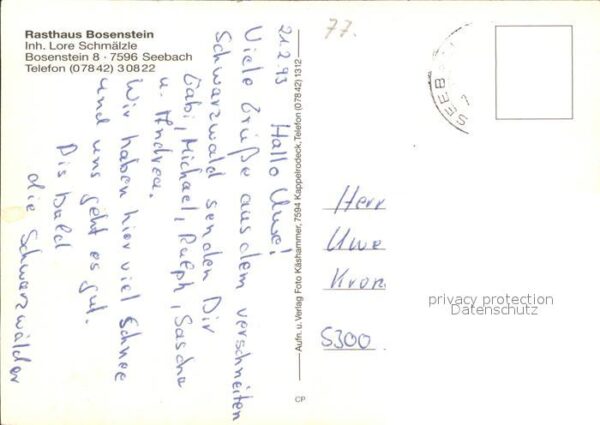 Rasthaus Bosenstein
Inh. Lore Schmälzle
Bosenstein 8 · 7596 Seebach
Telefon (07842) 30822
21.2.93 Hallo Uwe!
Viele Grüße aus dem verschneiten
Schwarzwald senden Dir
Gabi, Michael, Ralph, Sascha
u. Andrea.
Wir haben hier viel Schnee
und uns geht es gut.
Bis bald
die Schwarzwälder
Aufn. u. Verlag Foto Käshammer, 7594 Kappelrodeck, Telefon (07842) 1312
CP
77.
SEEB
Herr
Uwe
Kron
5300
privacy protection
Datenschutz